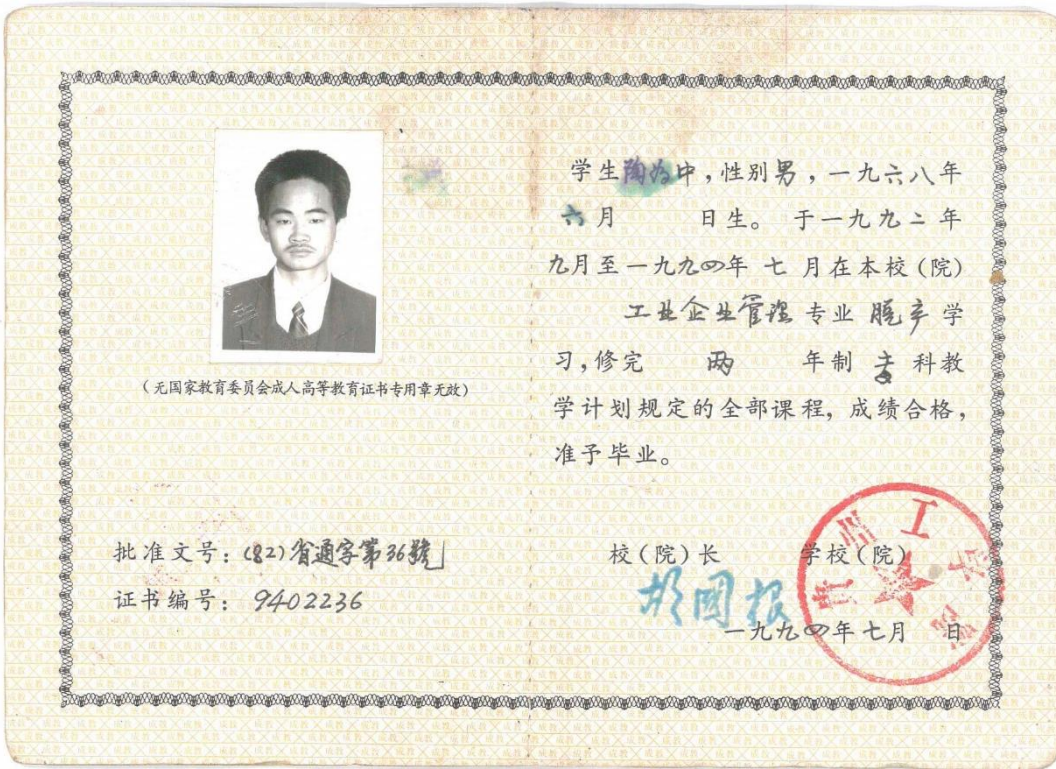 (无国家教育委员会成人高等教育证书专用章无效)
批准文号：(82)省通字第36號
证书编号：9402236
学生陶为中，性别男，一九六八年
六月 日生。于一九九二年
九月至一九九四年 七 月在本校(院)
工业企业管理 专业 脱产 学
习，修完 两 年制 专 科教
学计划规定的全部课程，成绩合格，
准予毕业。
校(院)长 学校(院)
国根
一九九四年七月 日
贵州工学院